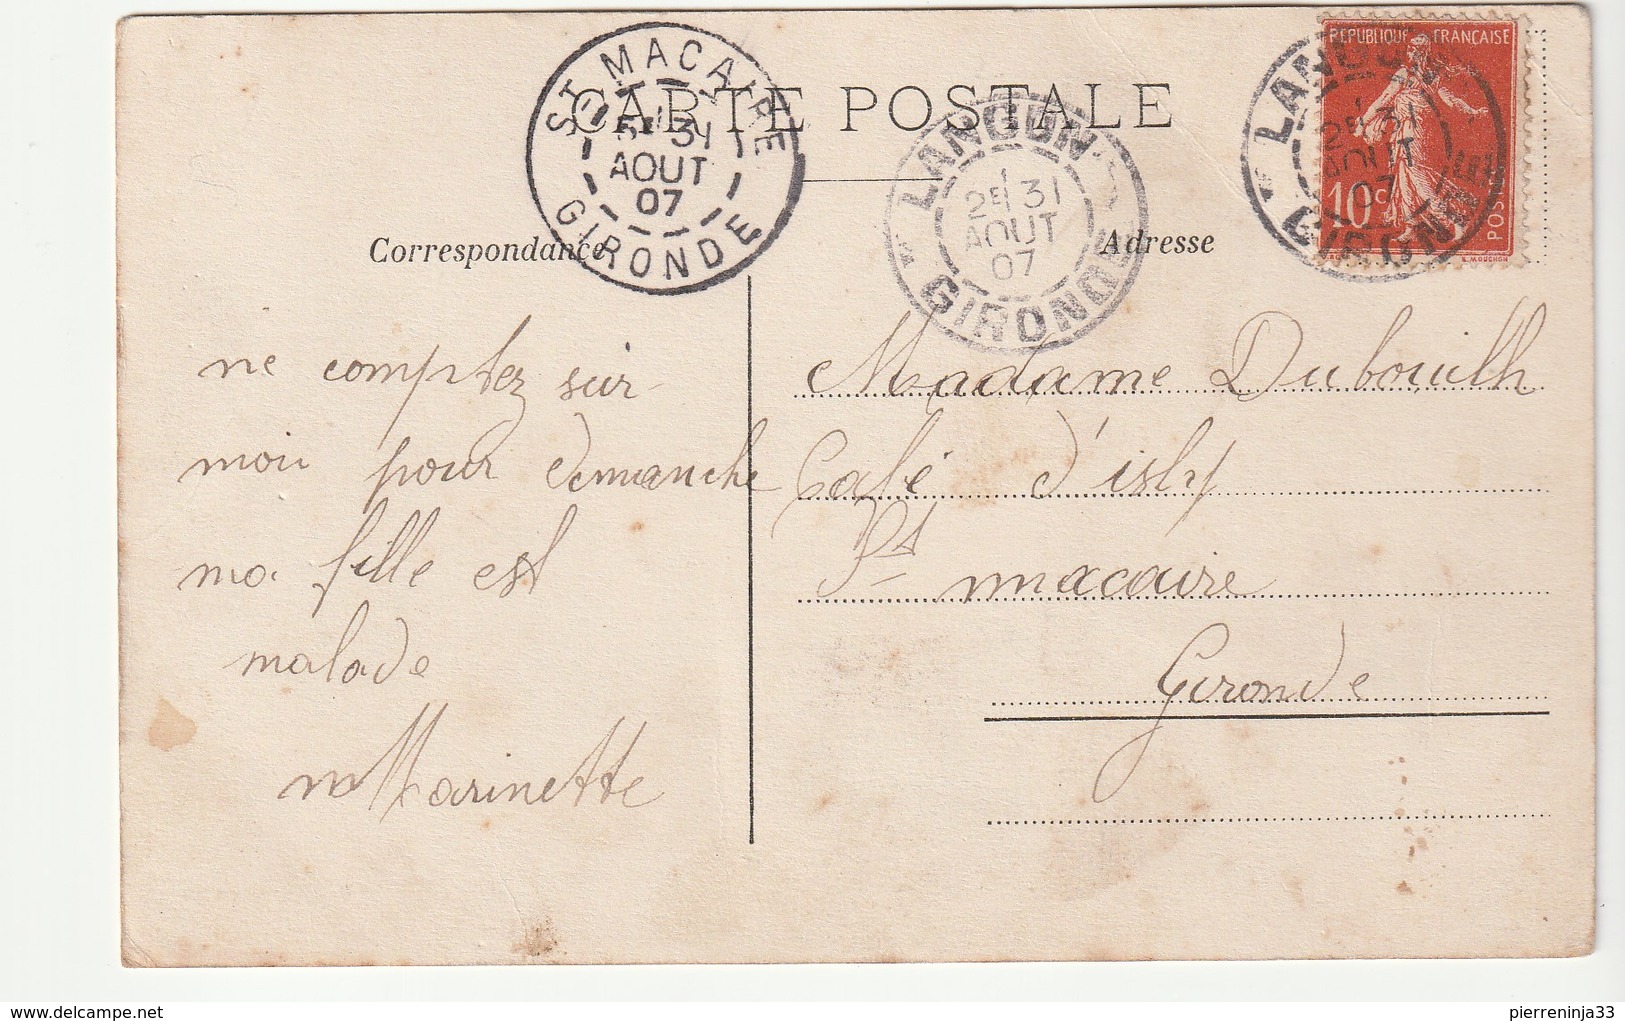 CARTE POSTALE
ST MACAIRE
5E 31
AOUT
07
GIRONDE
LANGON
2E 31
AOUT
07
GIRONDE
LANGON
2E 31
AOUT
07
GIRONDE
REPUBLIQUE FRANÇAISE
10c
POSTES
E. MOUCHON
Correspondance
Adresse
ne comptez sur
moi pour dimanche
ma fille est
malade
Marinette
Madame Dubouilh
Café d'isly
St macaire
Gironde
delcampe.net
pierreninja33